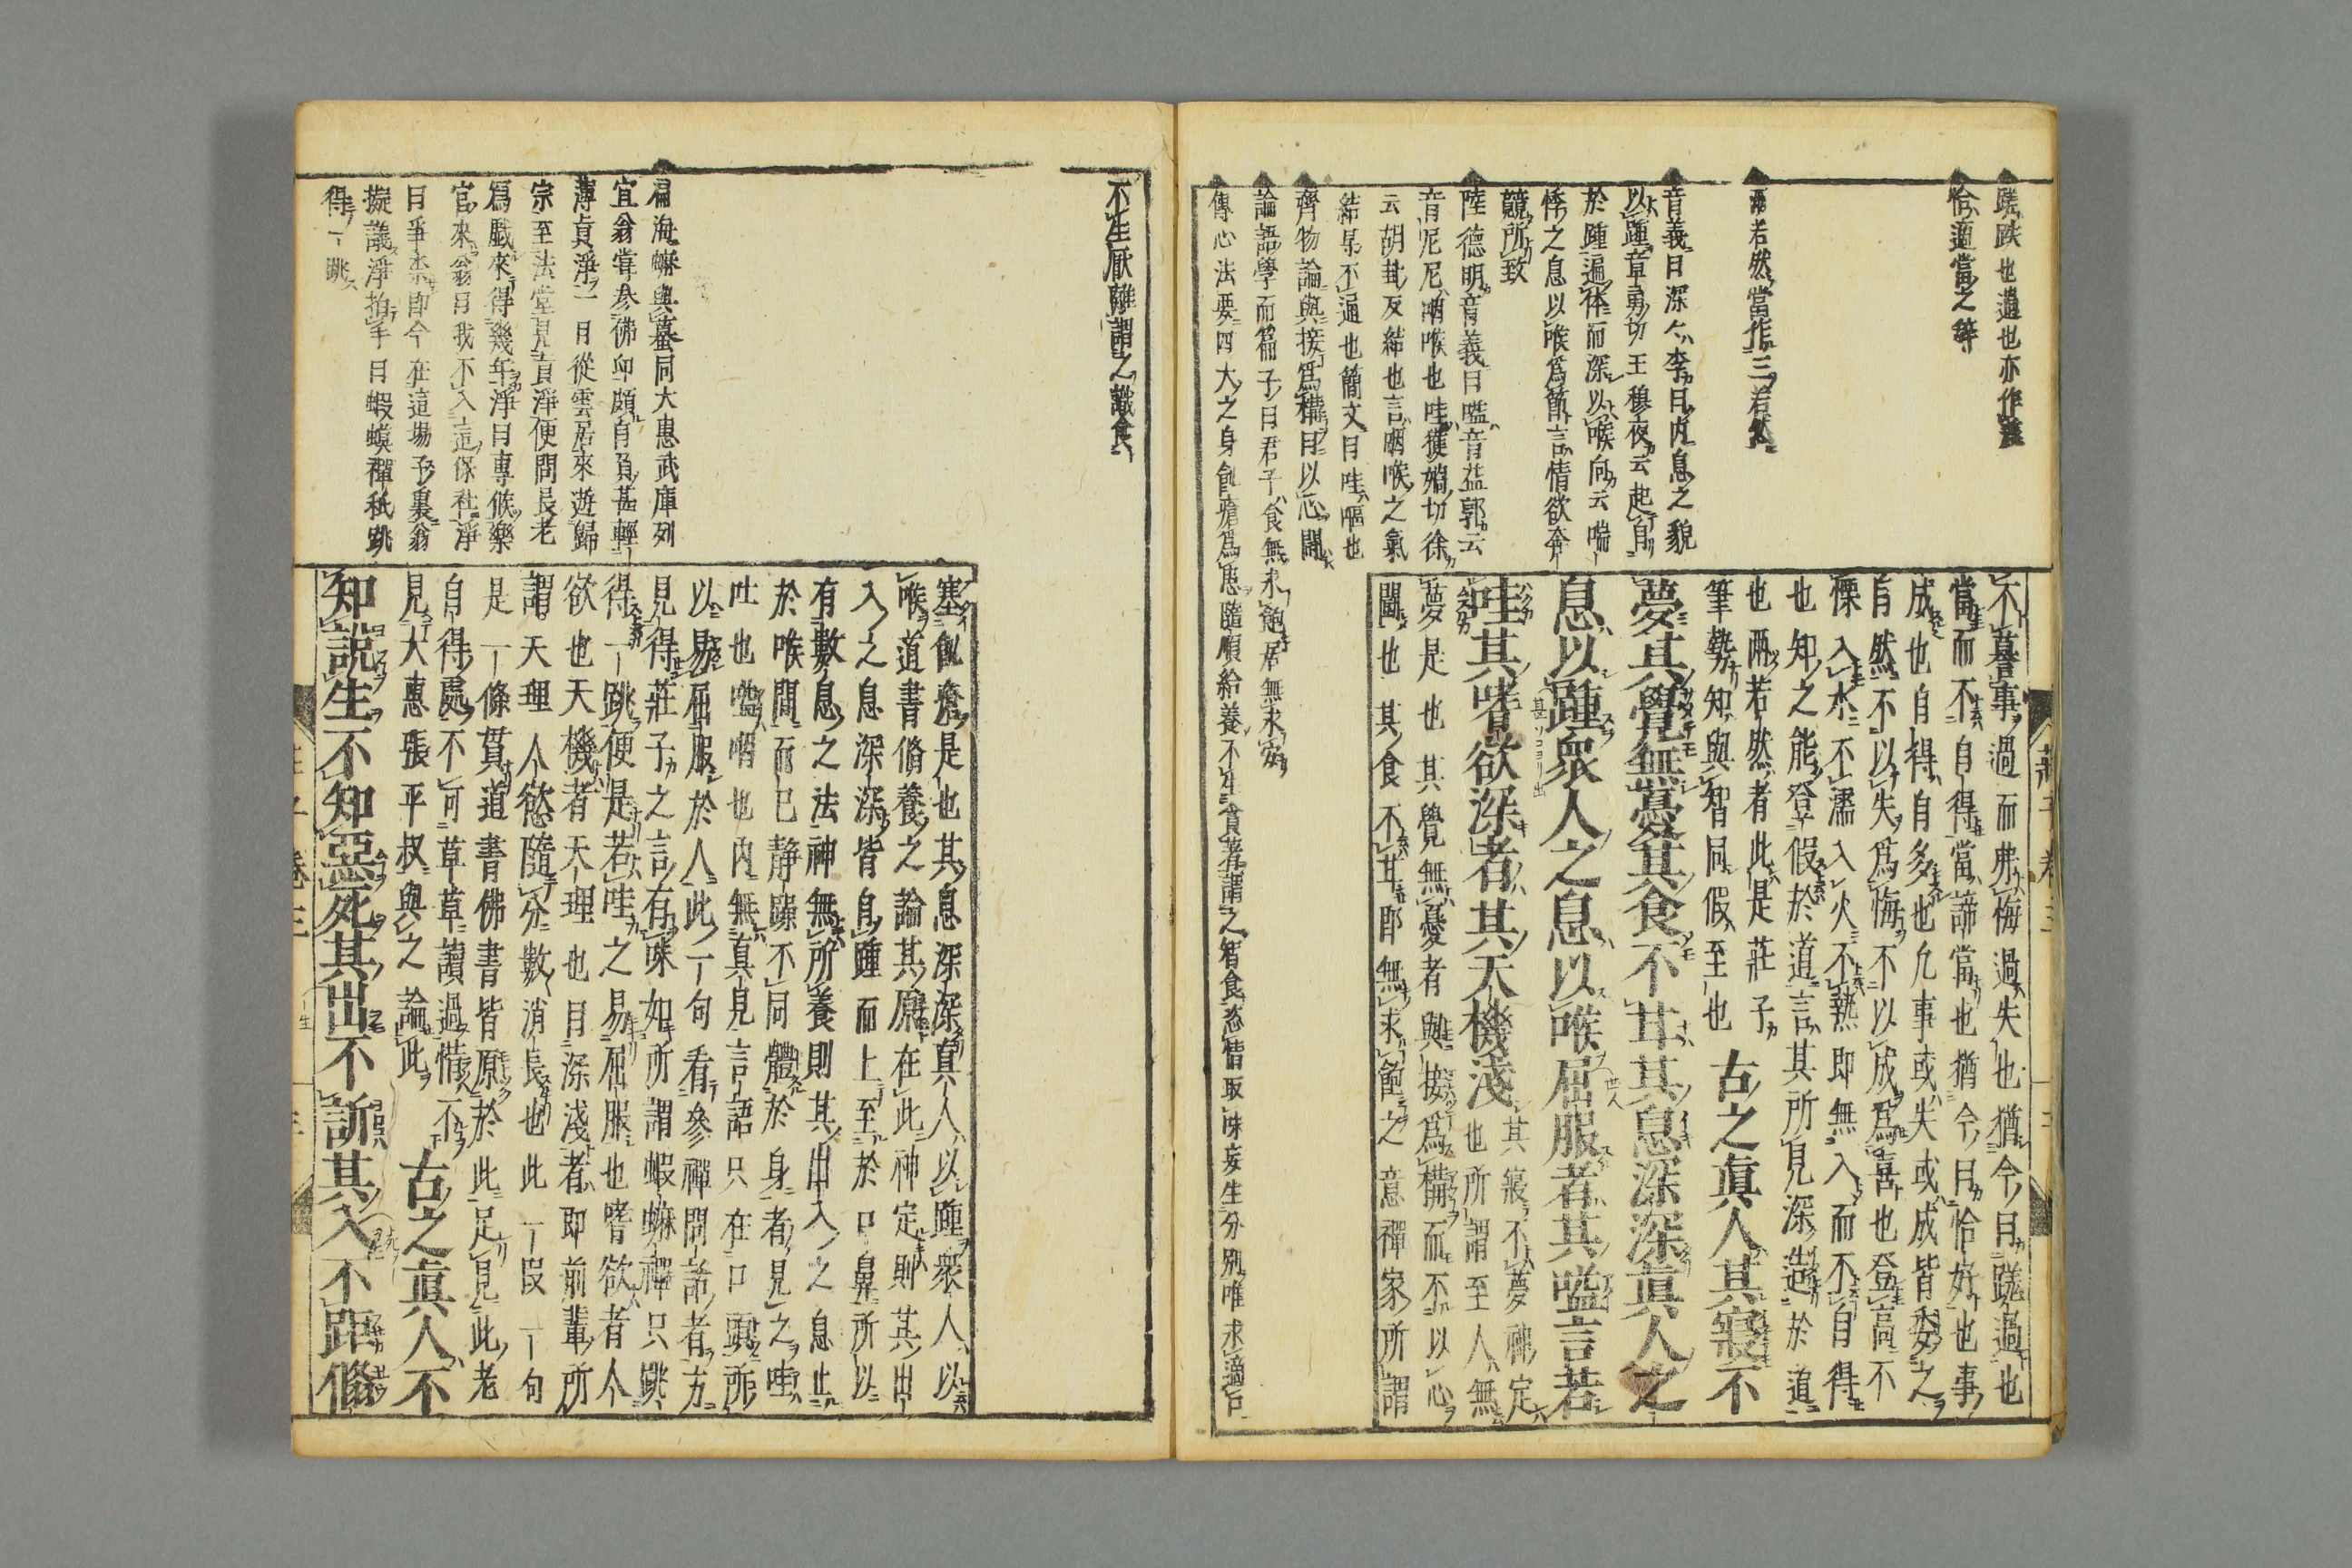 蹉跌也過也亦作差
恰適當之辞
兩若然當作三若然
音義曰深々李曰内息之貌
以踵章勇切王穆夜云起息
於踵遍体而深以喉向云喘
悸之息以喉爲節言情欲奔
競所致
陸德明音義曰嗌音益郭云
音厄厄咽喉也哇獲媧切徐
云胡卦反結也言咽喉之氣
結㝵不通也簡文曰哇嘔也
齊物論與接爲構日以心鬪
論語學而篇子曰君子食無求飽居無求安
傳心法要四大之身飢瘡爲患隨順給養不生貪著謂之智食恣情取味妄生分別唯求適口
不謩事過而弗悔過失也猶今曰蹉過也
當而不自得當諦當也猶今曰恰好也事
成也自得自多也凡事或失或成皆委之
自然不以失爲悔不以成爲喜也登高不
慄入水不濡入火不熱即無入而不自得
也知之能登假於道言其所見深造於道
也兩若然者此是莊子
筆勢知與智同假至也古之眞人其寢不
夢其覺無憂其食不甘其息深深眞人之
息以踵衆人之息以喉屈服者其嗌言若
哇其嗜欲深者其天機淺其寢不夢神定
也所謂至人無
夢是也其覺無憂者與接爲構而不以心
鬪也其食不甘即無求飽之意禪家所謂
不生厭離謂之識食
塞飢瘡是也其息深深眞人以踵衆人以
喉道書脩養之論其原在此神定則其出
入之息深深皆自踵而上至於口鼻所以
有數息之法神無所養則其出入之息止
於喉間而已静躁不同體於身者見之哇
吐也嗌咽也内無真見言語只在口頭所
以易屈服於人此一句看參禪問話者方
見得莊子之言有味如所謂蝦蟆禪只跳
得一跳便是若哇之易屈服也嗜欲者人
欲也天機者天理也曰深淺者即前輩所
謂天理人慾隨分數消長也此一段一句
是一條貫道書佛書皆原於此足見此老
自得處不可草草讀過惜不
見大惠張平叔與之論此古之眞人不
知説生不知惡死其出不訢其入不距翛
扁海蟆與蟇同大惠武庫列
宜翁甞参佛印頗自負甚輕
薄眞淨一日從雲居來遊歸
宗至法堂見眞淨便問長老
寫戲來得幾年淨曰專候樂
官來翁曰我不入這保社淨
曰爭柰即今在這場子裏翁
擬議淨拍手曰蝦蟆禪秖跳
得一跳